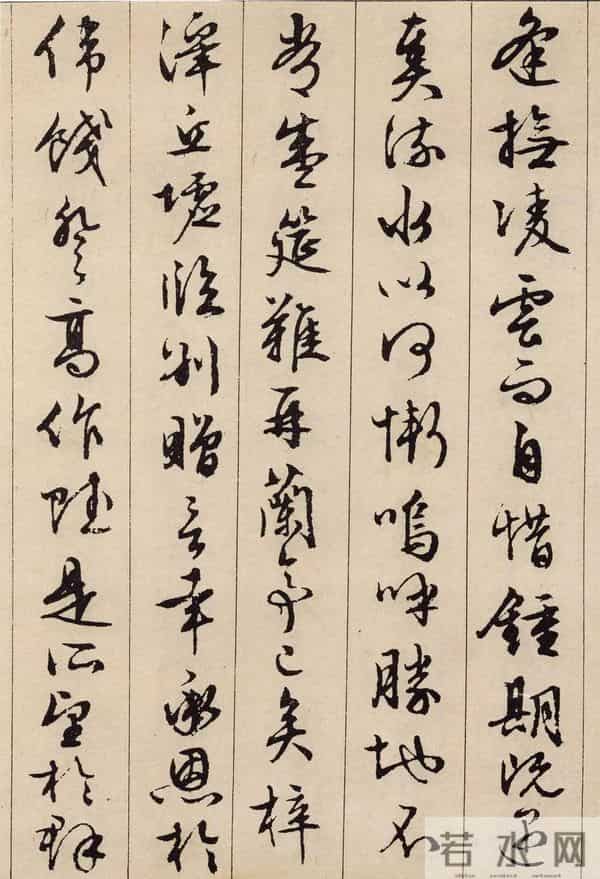 逢撫凌雲而自惜鍾期既遇
奏流水以何慚嗚呼勝地不
常盛筵難再蘭亭已矣梓
澤丘墟臨別贈言幸承恩於
偉餞登高作賦是所望於群
若水网